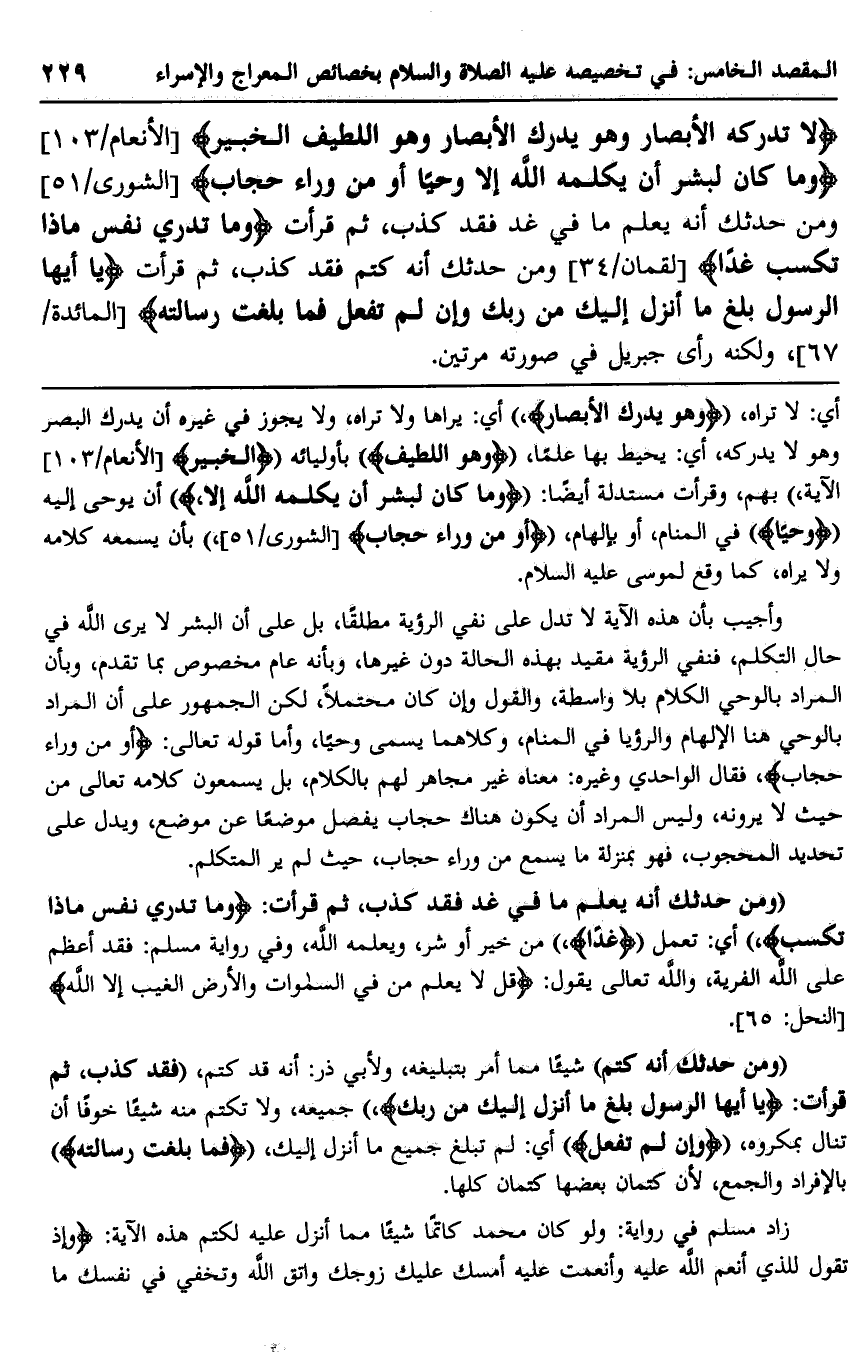 المقصد الخامس: في تخصيصه عليه الصلاة والسلام بخصائص المعراج والإسراء ٢٢٩
﴿لا تدركه الأبصار وهو يدرك الأبصار وهو اللطيف الخبير﴾ [الأنعام/١٠٣]
﴿وما كان لبشر أن يكلمه اللَّه إلا وحيًا أو من وراء حجاب﴾ [الشورى/٥١]
ومن حدثك أنه يعلم ما في غد فقد كذب، ثم قرأت ﴿وما تدري نفس ماذا
تكسب غدًا﴾ [لقمان/٣٤] ومن حدثك أنه كتم فقد كذب، ثم قرأت ﴿يا أيها
الرسول بلغ ما أنزل إليك من ربك وإن لم تفعل فما بلغت رسالته﴾ [المائدة/
٦٧]، ولكنه رأى جبريل في صورته مرتين.
أي: لا تراه، (﴿وهو يدرك الأبصار﴾،) أي: يراها ولا تراه، ولا يجوز في غيره أن يدرك البصر
وهو لا يدركه، أي: يحيط بها علمًا، (﴿وهو اللطيف﴾) بأوليائه (﴿الخبير﴾ [الأنعام/١٠٣]
الآية،) بهم، وقرأت مستدلة أيضًا: (﴿وما كان لبشر أن يكلمه اللَّه إلا،﴾) أن يوحى إليه
(﴿وحيًا﴾) في المنام، أو بإلهام، (﴿أو من وراء حجاب﴾ [الشورى/٥١]،) بأن يسمعه كلامه
ولا يراه، كما وقع لموسى عليه السلام.
وأجيب بأن هذه الآية لا تدل على نفي الرؤية مطلقًا، بل على أن البشر لا يرى اللَّه في
حال التكلم، فنفي الرؤية مقيد بهذه الحالة دون غيرها، وبأنه عام مخصوص بما تقدم، وبأن
المراد بالوحي الكلام بلا واسطة، والقول وإن كان محتملاً، لكن الجمهور على أن المراد
بالوحي هنا الإلهام والرؤيا في المنام، وكلاهما يسمى وحيًا، وأما قوله تعالى: ﴿أو من وراء
حجاب﴾، فقال الواحدي وغيره: معناه غير مجاهر لهم بالكلام، بل يسمعون كلامه تعالى من
حيث لا يرونه، وليس المراد أن يكون هناك حجاب يفصل موضعًا عن موضع، ويدل على
تحديد المحجوب، فهو بمنزلة ما يسمع من وراء حجاب، حيث لم ير المتكلم.
(ومن حدثك أنه يعلم ما في غد فقد كذب، ثم قرأت: ﴿وما تدري نفس ماذا
تكسب﴾،) أي: تعمل (﴿غدًا﴾،) من خير أو شر، ويعلمه اللَّه، وفي رواية مسلم: فقد أعظم
على اللَّه الفرية، واللَّه تعالى يقول: ﴿قل لا يعلم من في السمٰوات والأرض الغيب إلا اللَّه﴾
[النحل: ٦٥].
(ومن حدثك أنه كتم) شيئًا مما أمر بتبليغه، ولأبي ذر: أنه قد كتم، (فقد كذب، ثم
قرأت: ﴿يا أيها الرسول بلغ ما أنزل إليك من ربك﴾،) جميعه، ولا تكتم منه شيئًا خوفًا أن
تنال بمكروه، (﴿وإن لم تفعل﴾) أي: لم تبلغ جميع ما أنزل إليك، (﴿فما بلغت رسالته﴾)
بالإفراد والجمع، لأن كتمان بعضها كتمان كلها.
زاد مسلم في رواية: ولو كان محمد كاتمًا شيئًا مما أنزل عليه لكتم هذه الآية: ﴿وإذ
تقول للذي أنعم اللَّه عليه وأنعمت عليه أمسك عليك زوجك واتق اللَّه وتخفي في نفسك ما